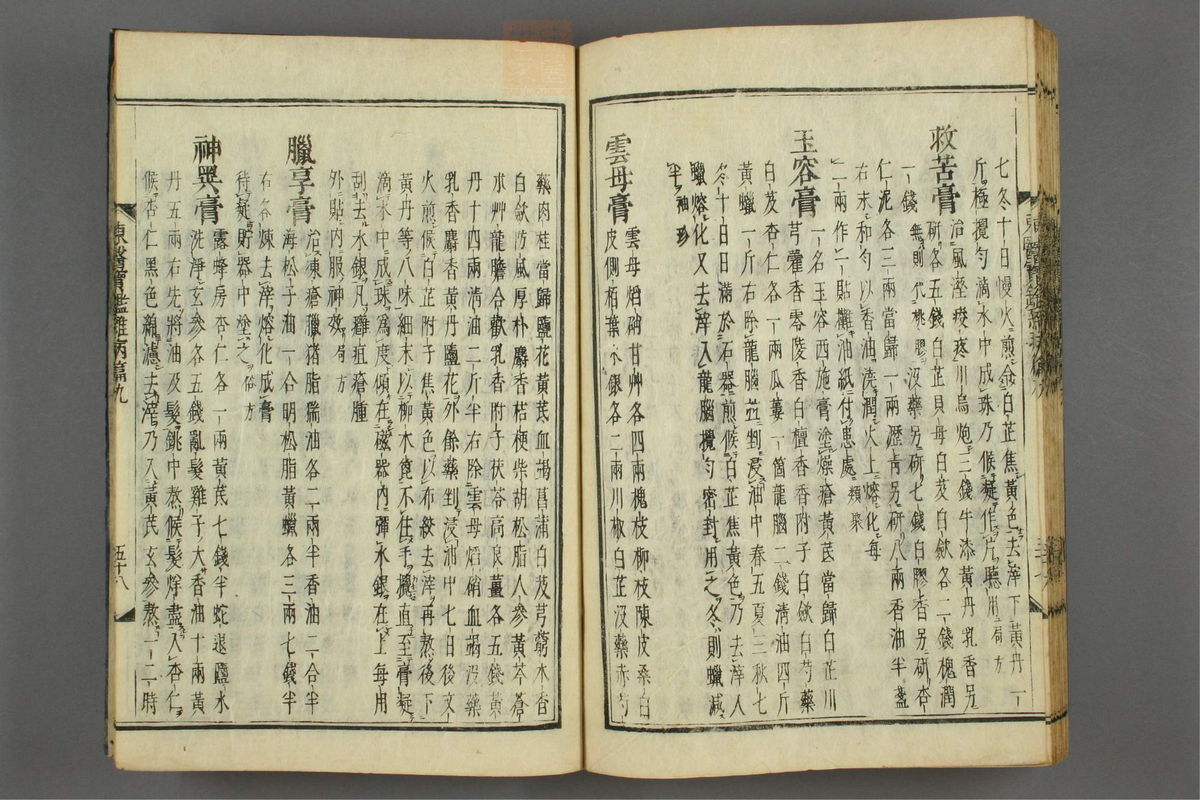 七冬十日慢火煎令白芷焦黃色去滓下黃丹一
斤極攪勻滴水中成珠乃候凝作片聽用局方
救苦膏
治風壅痠疼川烏炮三錢牛漆黃丹乳香另
研各五錢白芷貝母白芨白斂各二錢槐潤
一錢無則代桃膠沒藥另研七錢白膠香另研杏
仁泥各三兩當歸一兩瀝靑另研八兩香油半盞
右末和勻以香油澆潤火上熔化每
二兩作一貼攤油紙付患處類聚
玉容膏
一名玉容西施膏塗燥瘡黃芪當歸白芷川
芎藿香零陵香白檀香香附子白斂白芍藥
白芨杏仁各一兩瓜蔞一箇龍腦二錢淸油四斤
黃蠟一斤右除龍腦並剉浸油中春五夏三秋七
冬十日日滿於石器煎候白芷焦黃色乃去滓入
蠟熔化又去滓入龍腦攪勻密封用之冬則蠟減
半袖珍
雲母膏
雲母焰硝甘艸各四兩槐枝柳枝陳皮桑白
皮側栢葉水銀各二兩川椒白芷沒藥赤芍
藥肉桂當歸鹽花黃芪血竭菖蒲白芨芎藭木香
白斂防風厚朴麝香桔梗柴胡松脂人參黃芩蒼
朮艸龍膽合歡乳香附子茯苓高良薑各五錢黃
丹十四兩淸油二斤半右除雲母焰硝血竭沒藥
乳香麝香黃丹鹽花外餘藥剉浸油中七日後文
火煎候白芷附子焦黃色以布絞去滓再熬後下
黃丹等八味細末以柳木篦不住手攪直至膏凝
滴水中成珠爲度傾在磁器內彈水銀在上每用
刮去水銀凡癰疽瘡腫
外貼內服神效局方
臘享膏
治凍瘡臘猪脂猯油各二兩半香油二合半
海松子油一合明松脂黃蠟各三兩七錢半
右各煉去滓熔化成膏
待凝貯器中塗之俗方
神異膏
露蜂房杏仁各一兩黃芪七錢半蛇退鹽水
洗淨玄參各五錢亂髮雞子大香油十兩黃
丹五兩右先將油及髮銚中熬候髮烊盡入杏仁
候杏仁黑色濾去滓乃入黃芪玄參熬一二時
東醫寶鑑雜病篇九
五十八